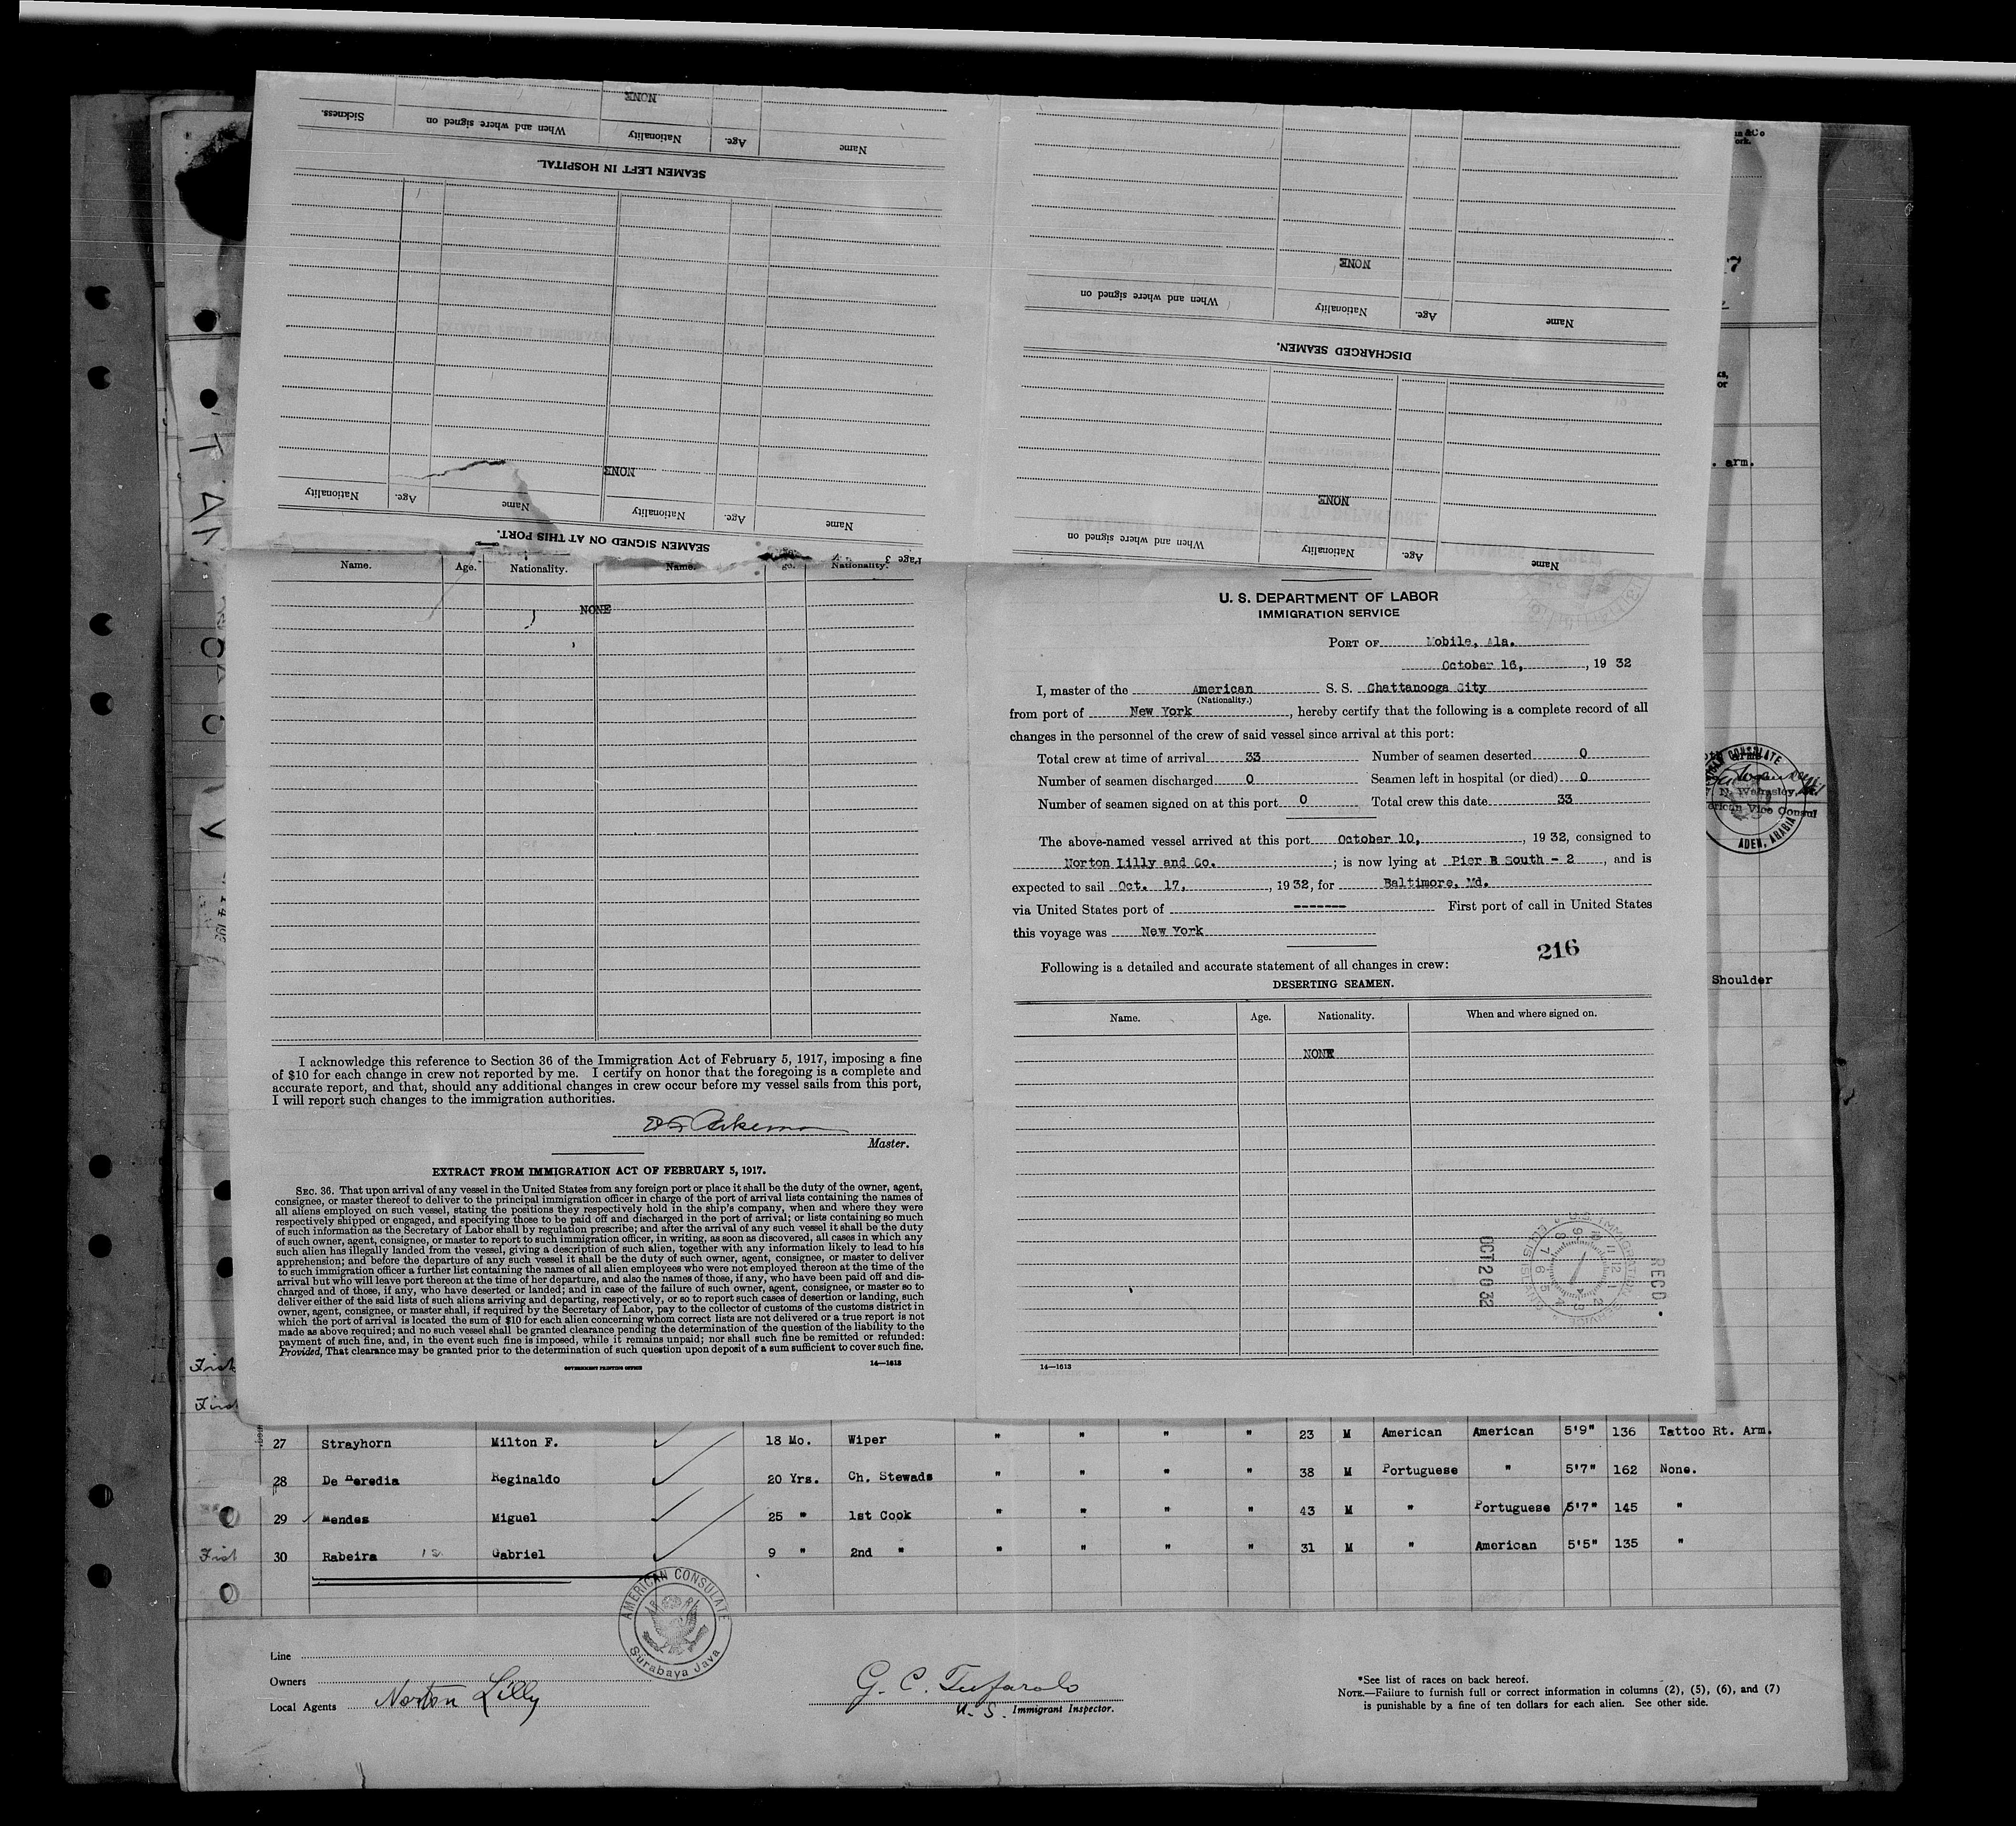 Sickness.
When and where signed on
Nationality
NONE
Age.
Name
SEAMEN LEFT IN HOSPITAL.
NONE
Nationality
Age.
Name
Nationality
Age.
Name
SEAMEN SIGNED ON AT THIS PORT.
Page 3
NONE
When and where signed on
Nationality
Age.
Name
DISCHARGED SEAMEN.
NONE
When and where signed on
Nationality
Age.
Name
Name. Age. Nationality. Name. Nationality.
NONE
I acknowledge this reference to Section 36 of the Immigration Act of February 5, 1917, imposing a fine
of $10 for each change in crew not reported by me. I certify on honor that the foregoing is a complete and
accurate report, and that, should any additional changes in crew occur before my vessel sails from this port,
I will report such changes to the immigration authorities.
Master.
EXTRACT FROM IMMIGRATION ACT OF FEBRUARY 5, 1917.
SEC. 36. That upon arrival of any vessel in the United States from any foreign port or place it shall be the duty of the owner, agent,
consignee, or master thereof to deliver to the principal immigration officer in charge of the port of arrival lists containing the names of
all aliens employed on such vessel, stating the positions they respectively hold in the ship's company, when and where they were
respectively shipped or engaged, and specifying those to be paid off and discharged in the port of arrival; or lists containing so much
of such information as the Secretary of Labor shall by regulation prescribe; and after the arrival of any such vessel it shall be the duty
of such owner, agent, consignee, or master to report to such immigration officer, in writing, as soon as discovered, all cases in which any
such alien has illegally landed from the vessel, giving a description of such alien, together with any information likely to lead to his
apprehension; and before the departure of any such vessel it shall be the duty of such owner, agent, consignee, or master to deliver
to such immigration officer a further list containing the names of all alien employees who were not employed thereon at the time of the
arrival but who will leave port thereon at the time of her departure, and also the names of those, if any, who have been paid off and dis-
charged and of those, if any, who have deserted or landed; and in case of the failure of such owner, agent, consignee, or master so to
deliver either of the said lists of such aliens arriving and departing, respectively, or so to report such cases of desertion or landing, such
owner, agent, consignee, or master shall, if required by the Secretary of Labor, pay to the collector of customs of the customs district in
which the port of arrival is located the sum of $10 for each alien concerning whom correct lists are not delivered or a true report is not
made as above required; and no such vessel shall be granted clearance pending the determination of the question of the liability to the
payment of such fine, and, in the event such fine is imposed, while it remains unpaid; nor shall such fine be remitted or refunded:
Provided, That clearance may be granted prior to the determination of such question upon deposit of a sum sufficient to cover such fine.
GOVERNMENT PRINTING OFFICE 14—1613
U. S. DEPARTMENT OF LABOR
IMMIGRATION SERVICE
PORT OF Mobile, Ala.
October 16, , 19 32
I, master of the American S. S. Chattanooga City
(Nationality.)
from port of New York , hereby certify that the following is a complete record of all
changes in the personnel of the crew of said vessel since arrival at this port:
Total crew at time of arrival 33 Number of seamen deserted 0
Number of seamen discharged 0 Seamen left in hospital (or died) 0
Number of seamen signed on at this port 0 Total crew this date 33
The above-named vessel arrived at this port October 10, , 19 32, consigned to
Norton Lilly and Co. ; is now lying at Pier B South - 2 , and is
expected to sail Oct. 17, , 19 32, for Baltimore, Md.
via United States port of ------- First port of call in United States
this voyage was New York
216
Following is a detailed and accurate statement of all changes in crew:
DESERTING SEAMEN.
Name. Age. Nationality. When and where signed on.
NONE
OCT 20 32
RECD.
14—1613
arm.
ADEN, ARABIA
Shoulder
First
First
27 Strayhorn Milton F. 18 Mo. Wiper " " " " 23 M American American 5'9" 136 Tattoo Rt. Arm.
28 De Heredia Reginaldo 20 Yrs. Ch. Stewads " " " " 38 M Portuguese " 5'7" 162 None.
29 Mendes Miguel 25 " 1st Cook " " " " 43 M " Portuguese 5'7" 145 "
First 30 Rabeira 12 Gabriel 9 " 2nd " " " " " 31 M " American 5'5" 135 "
AMERICAN CONSULATE
Surabaya Java
Line
Owners
Local Agents Norton Lilly
G. C. Tufarolo
U. S. Immigrant Inspector.
*See list of races on back hereof.
NOTE.—Failure to furnish full or correct information in columns (2), (5), (6), and (7)
is punishable by a fine of ten dollars for each alien. See other side.